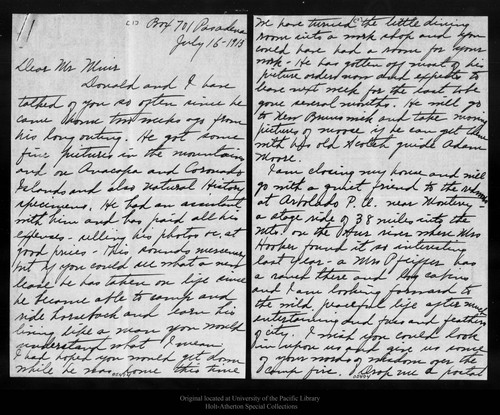 Box 701 Pasadena
July 16-1913
Dear Mr Muir
Donald and I have
talked of you so often since he
came home two weeks ago from
his long outing. He got some
fine pictures in the mountains
and on Anacapa and Coronado
Islands and also Natural History
specimens. He had an assistant
with him and has paid all his
expenses - selling his photos &c. at
good prices - This sounds mercenary
but if you could see what a new
lease he has taken on life since
he became able to camp and
ride horseback and earn his
living like a man you would
understand what I mean.
I had hoped you would get down
while he was home this time
We have turned the little dining
room into a work shop and you
could have had a room for your
work - He has gotten off most of his
picture orders now and expects to
leave next week for the East to be
gone several months. He will go
to New Brunswick and take moving
pictures of moose if he can get
with his old Scotch guide Adam
Moore.
I am closing my house and will
go with a quiet friend to the
at Arbolado P.O. near Monterey
a stage ride of 38 miles into the
Mts. on the river where Mrs
Hooker found it so interesting
last year - a Mrs Pfeiffer has
a ranch there and log cabins
and I am looking forward to
the mild, peaceful life after my
entertaining and fuss and feathers
of city. I wish you could look
in upon us and give us some
of your words of wisdom over the
camp fire. Drop me a postal
Original located at University of the Pacific Library
Holt-Atherton Special Collections